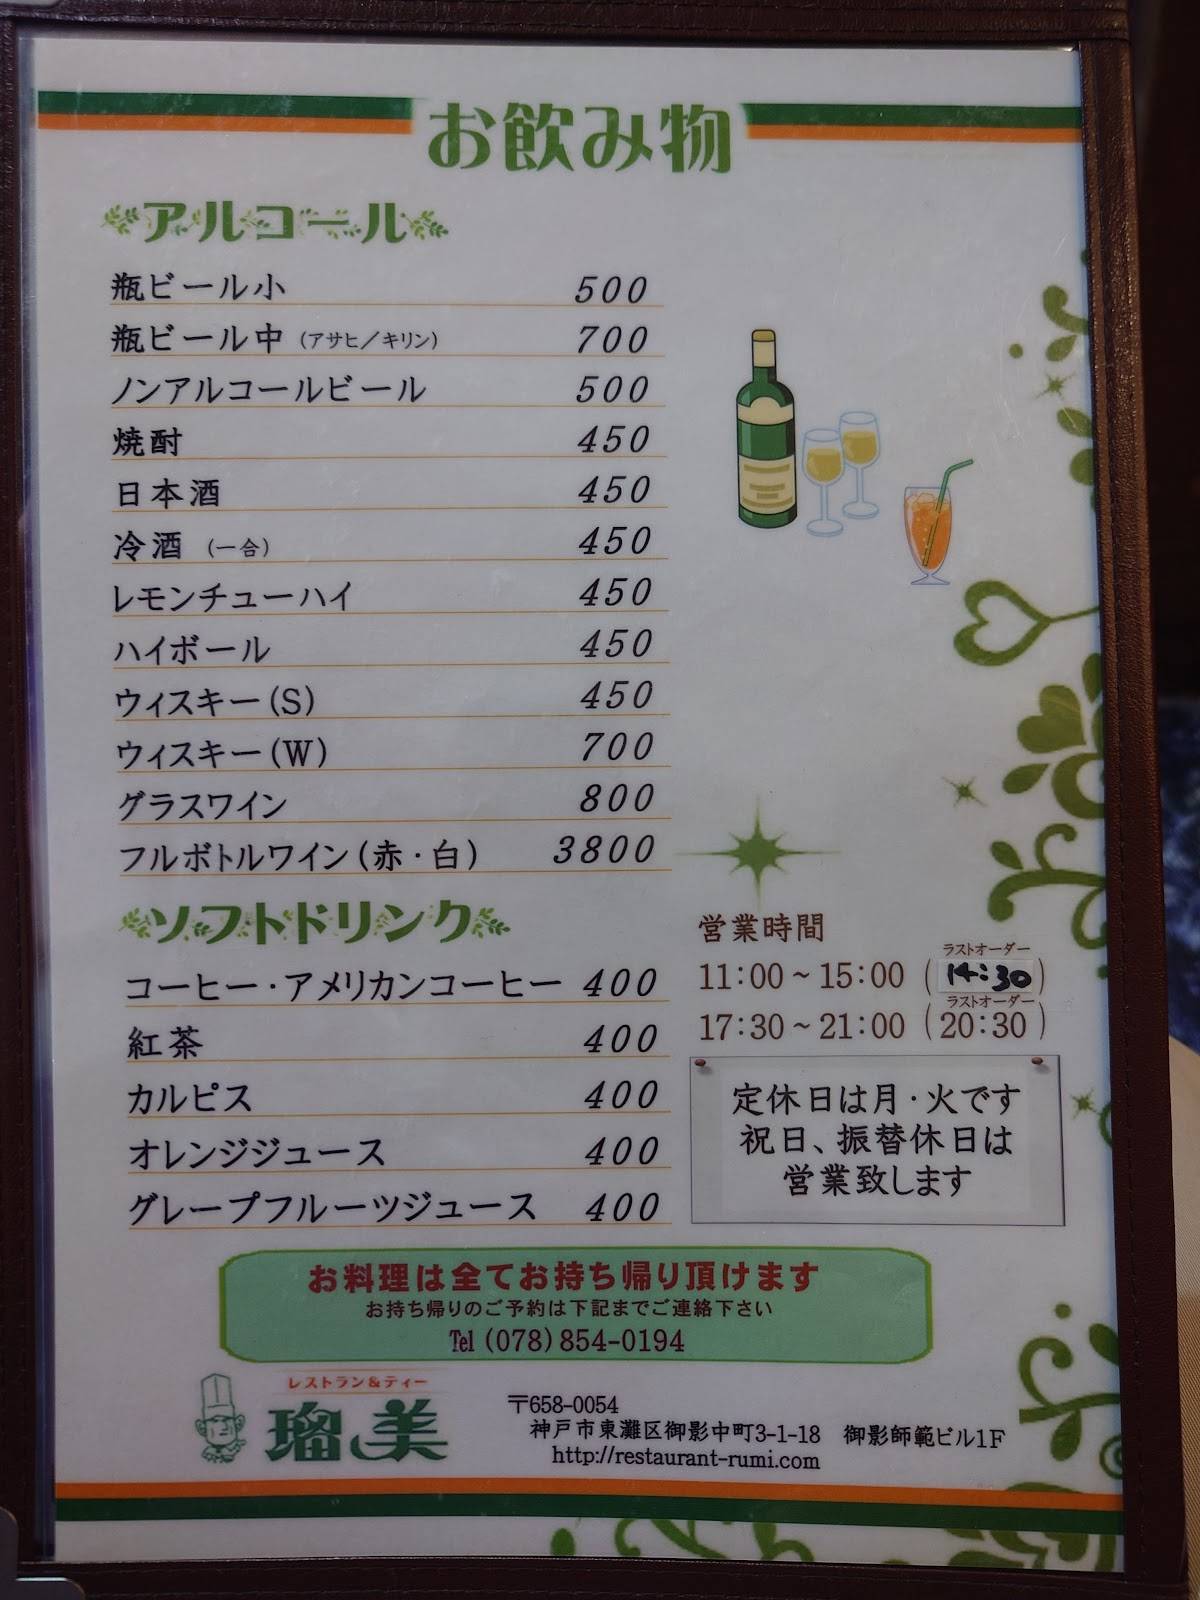 お飲み物
アルコール
瓶ビール小 500
瓶ビール中 (アサヒ/キリン) 700
ノンアルコールビール 500
焼酎 450
日本酒 450
冷酒 (一合) 450
レモンチューハイ 450
ハイボール 450
ウィスキー(S) 450
ウィスキー(W) 700
グラスワイン 800
フルボトルワイン(赤・白) 3800
ソフトドリンク
コーヒー・アメリカンコーヒー 400
紅茶 400
カルピス 400
オレンジジュース 400
グレープフルーツジュース 400
営業時間
ラストオーダー
11:00~15:00 (14:30)
ラストオーダー
17:30~21:00 (20:30)
定休日は月・火です
祝日、振替休日は
営業致します
お料理は全てお持ち帰り頂けます
お持ち帰りのご予約は下記までご連絡下さい
Tel (078)854-0194
レストラン&ティー
瑠美
〒658-0054
神戸市東灘区御影中町3-1-18 御影師範ビル1F
http://restaurant-rumi.com